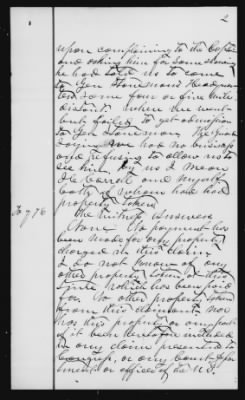 2
upon complaining to the Captain
and asking him for some showing
he had told us to come
to Gen Stoneman's Headquar
ters some four or five miles
distant. where we went
but failed to get admission
to Gen Stoneman. The guard
saying we had no business
and refusing to allow us to
see him. By us I mean
and myself
both of whom had had
property taken
The Witness Answers
None No payment has
been made for any property
charged in this claim.
I do not know of any
other property taken at this
time which has been paid
for. No other property taken
from this claimant nor
has this property or any part
of it been heretofore included
in any claim presented to
Congress, or any Court Depart
ment or officer of the U.S.